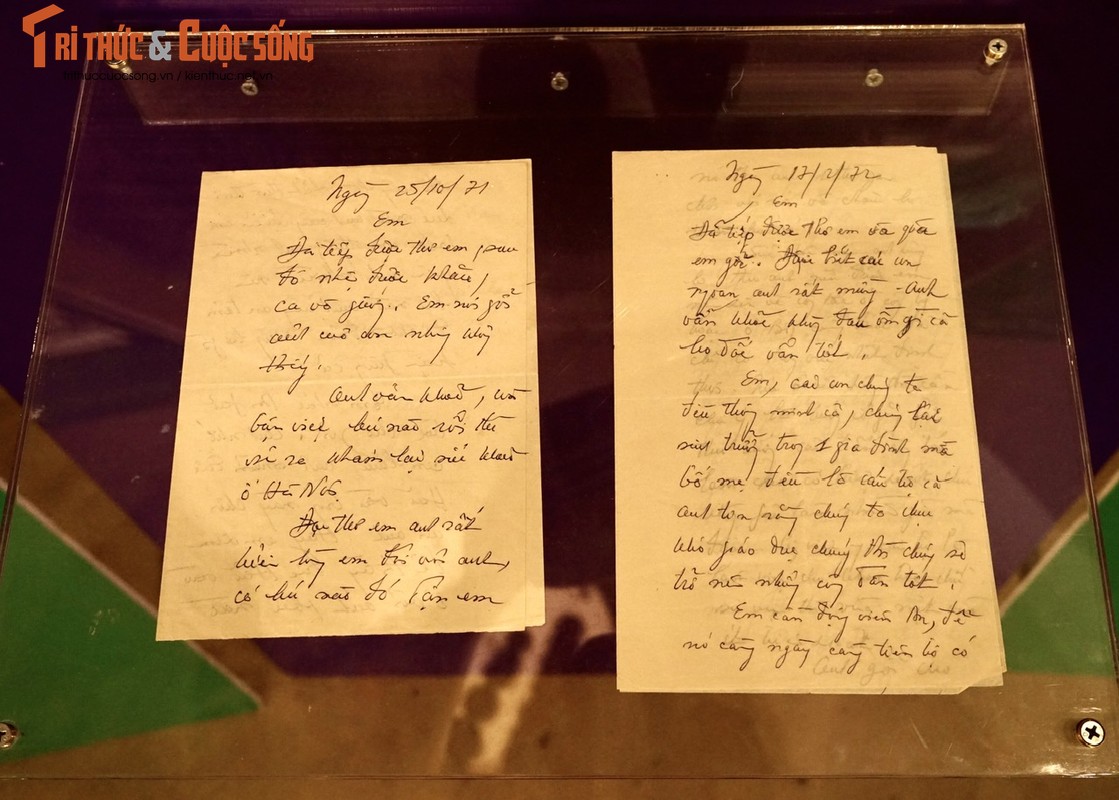 TRI THỨC & CUỘC SỐNG
trithuccuocsong.vn / kienthuc.net.vn
Ngày 25/10/71
Em
Đã tiếp được thơ em, sau
đó nhận được khăn,
ca vô giường. Em nói gởi
anh cuốn nhưng không
thấy.
Anh vẫn khoẻ, còn
bận việc lúc nào rỗi thì
sẽ ra khám lại sức khoẻ
ở Hà Nội.
Đọc thơ em anh rất
hiểu lòng em đối với anh,
có lúc nào đó bận em
Ngày 17/2/72
Em
Đã tiếp được thơ em và quà
em gởi. Được biết các con
ngoan anh rất mừng - Anh
vẫn khoẻ không đau ốm gì cả
họ đối vẫn tốt.
Em, các con chúng ta
đều thông minh cả, chúng lại
sinh trưởng trong 1 gia đình mà
bố mẹ đều là cán bộ cả
anh tin rằng chúng ta chịu
khó giáo dục chúng thì chúng sẽ
trở nên những công dân tốt.
Em cần động viên An, để
nó càng ngày càng tiến bộ có